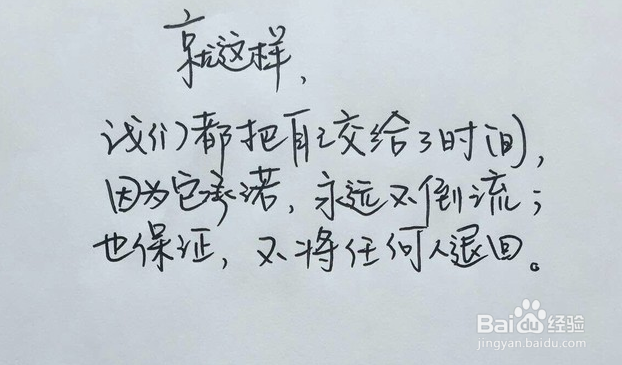 就这样，
我们都把自己交给了时间，
因为它承诺，永远不倒流；
也保证，不将任何人退回。
Baidu经验
jingyan.baidu.com